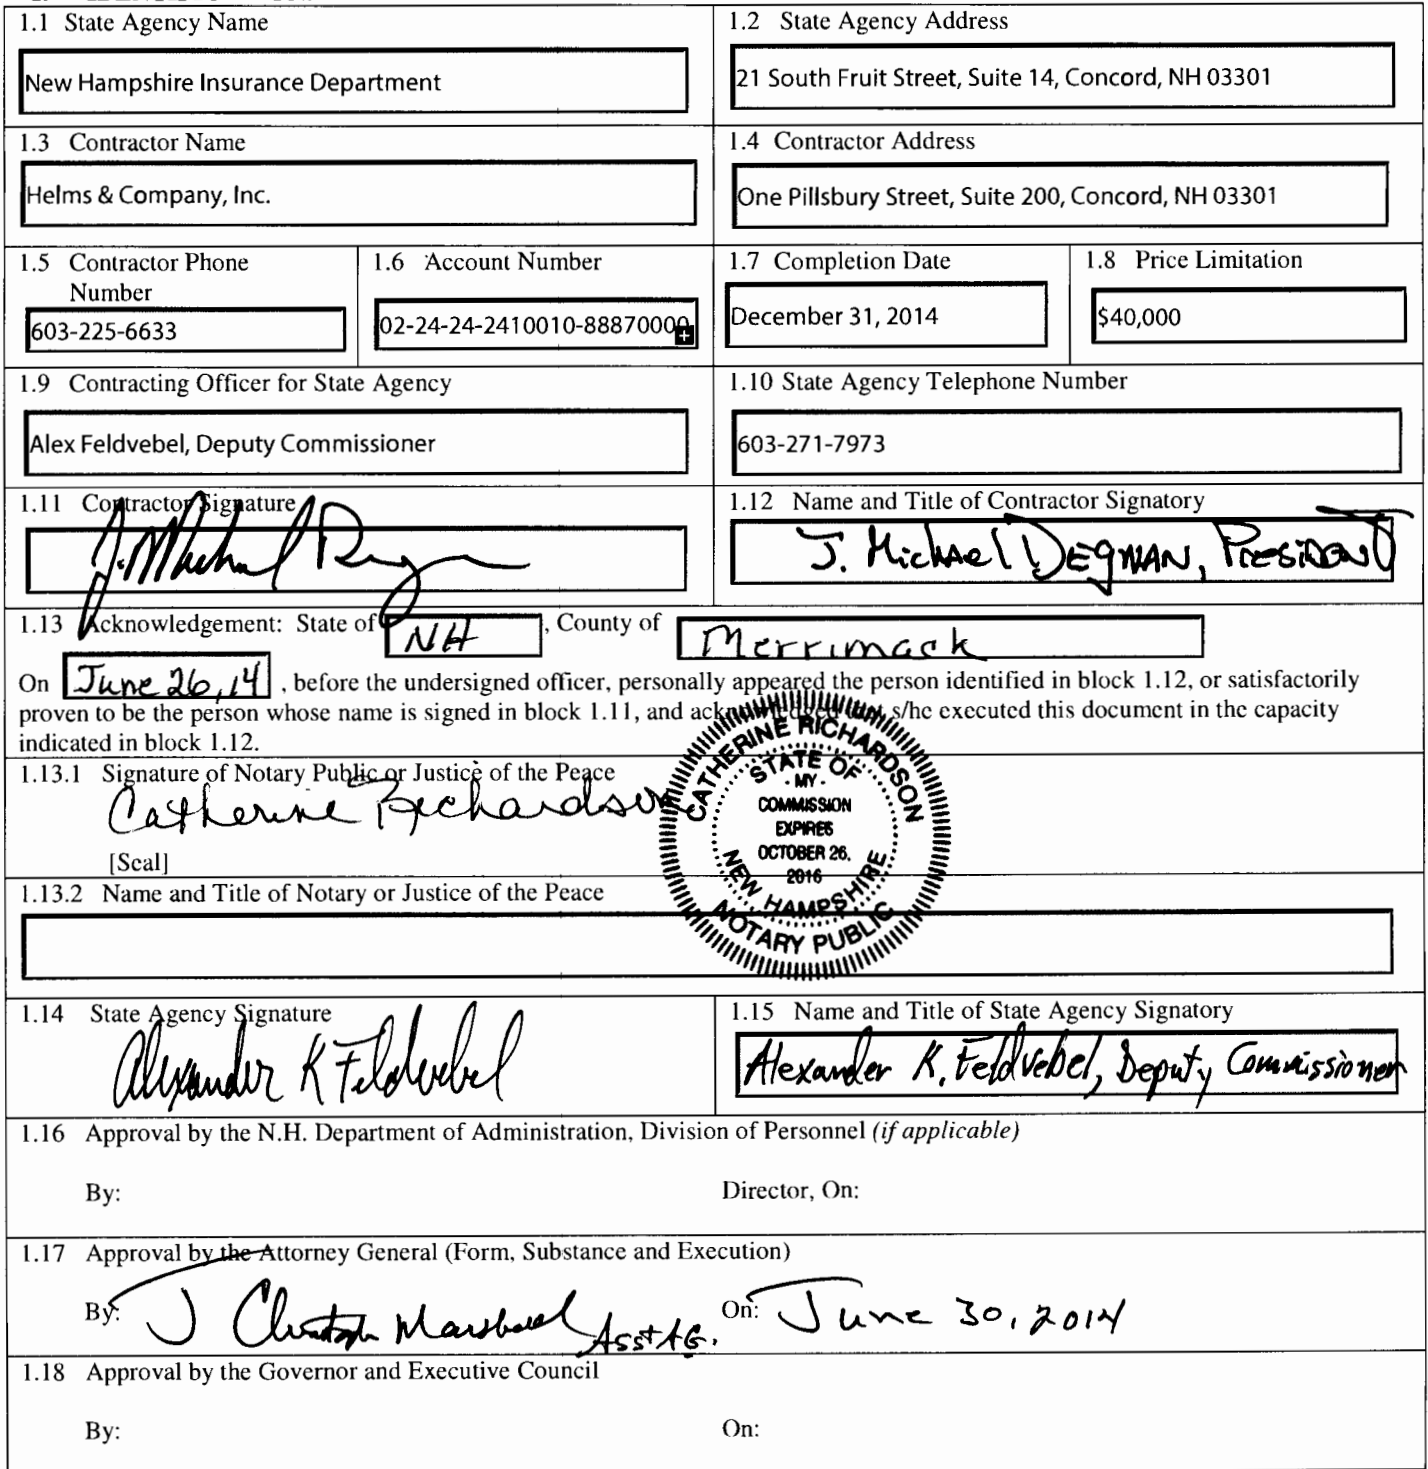 1.1 State Agency Name
New Hampshire Insurance Department
1.2 State Agency Address
21 South Fruit Street, Suite 14, Concord, NH 03301
1.3 Contractor Name
Helms & Company, Inc.
1.4 Contractor Address
One Pillsbury Street, Suite 200, Concord, NH 03301
1.5 Contractor Phone
Number
603-225-6633
1.6 Account Number
02-24-24-2410010-88870000
1.7 Completion Date
December 31, 2014
1.8 Price Limitation
$40,000
1.9 Contracting Officer for State Agency
Alex Feldvebel, Deputy Commissioner
1.10 State Agency Telephone Number
603-271-7973
1.11 Contractor Signature
J. Michael Degnan
1.12 Name and Title of Contractor Signatory
J. Michael Degnan, President
1.13 Acknowledgement: State of NH, County of Merrimack
On June 26, 14, before the undersigned officer, personally appeared the person identified in block 1.12, or satisfactorily
proven to be the person whose name is signed in block 1.11, and acknowledged that s/he executed this document in the capacity
indicated in block 1.12.
1.13.1 Signature of Notary Public or Justice of the Peace
Catherine Richardson
[Seal]
CATHERINE RICHARDSON
STATE OF
- MY -
COMMISSION
EXPIRES
OCTOBER 26,
2016
NEW HAMPSHIRE
NOTARY PUBLIC
1.13.2 Name and Title of Notary or Justice of the Peace
1.14 State Agency Signature
Alexander K Feldvebel
1.15 Name and Title of State Agency Signatory
Alexander K. Feldvebel, Deputy Commissioner
1.16 Approval by the N.H. Department of Administration, Division of Personnel (if applicable)
By:
Director, On:
1.17 Approval by the Attorney General (Form, Substance and Execution)
By: J Christoph Marshall Asst AG.
On: June 30, 2014
1.18 Approval by the Governor and Executive Council
By:
On: